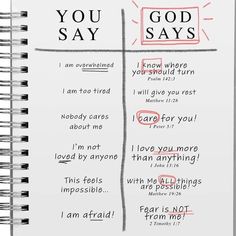 YOU SAY
GOD SAYS
I am overwhelmed
I know where
you should turn
Psalm 142:3
I am too tired
I will give you rest
Matthew 11:28
Nobody cares
about me
I care for you!
1 Peter 5:7
I'm not
loved by anyone
I love you more
than anything!
1 John 13:16
This feels
impossible...
With Me ALL things
are possible!
Matthew 19:26
I am afraid!
Fear is NOT
from me!
2 Timothy 1:7